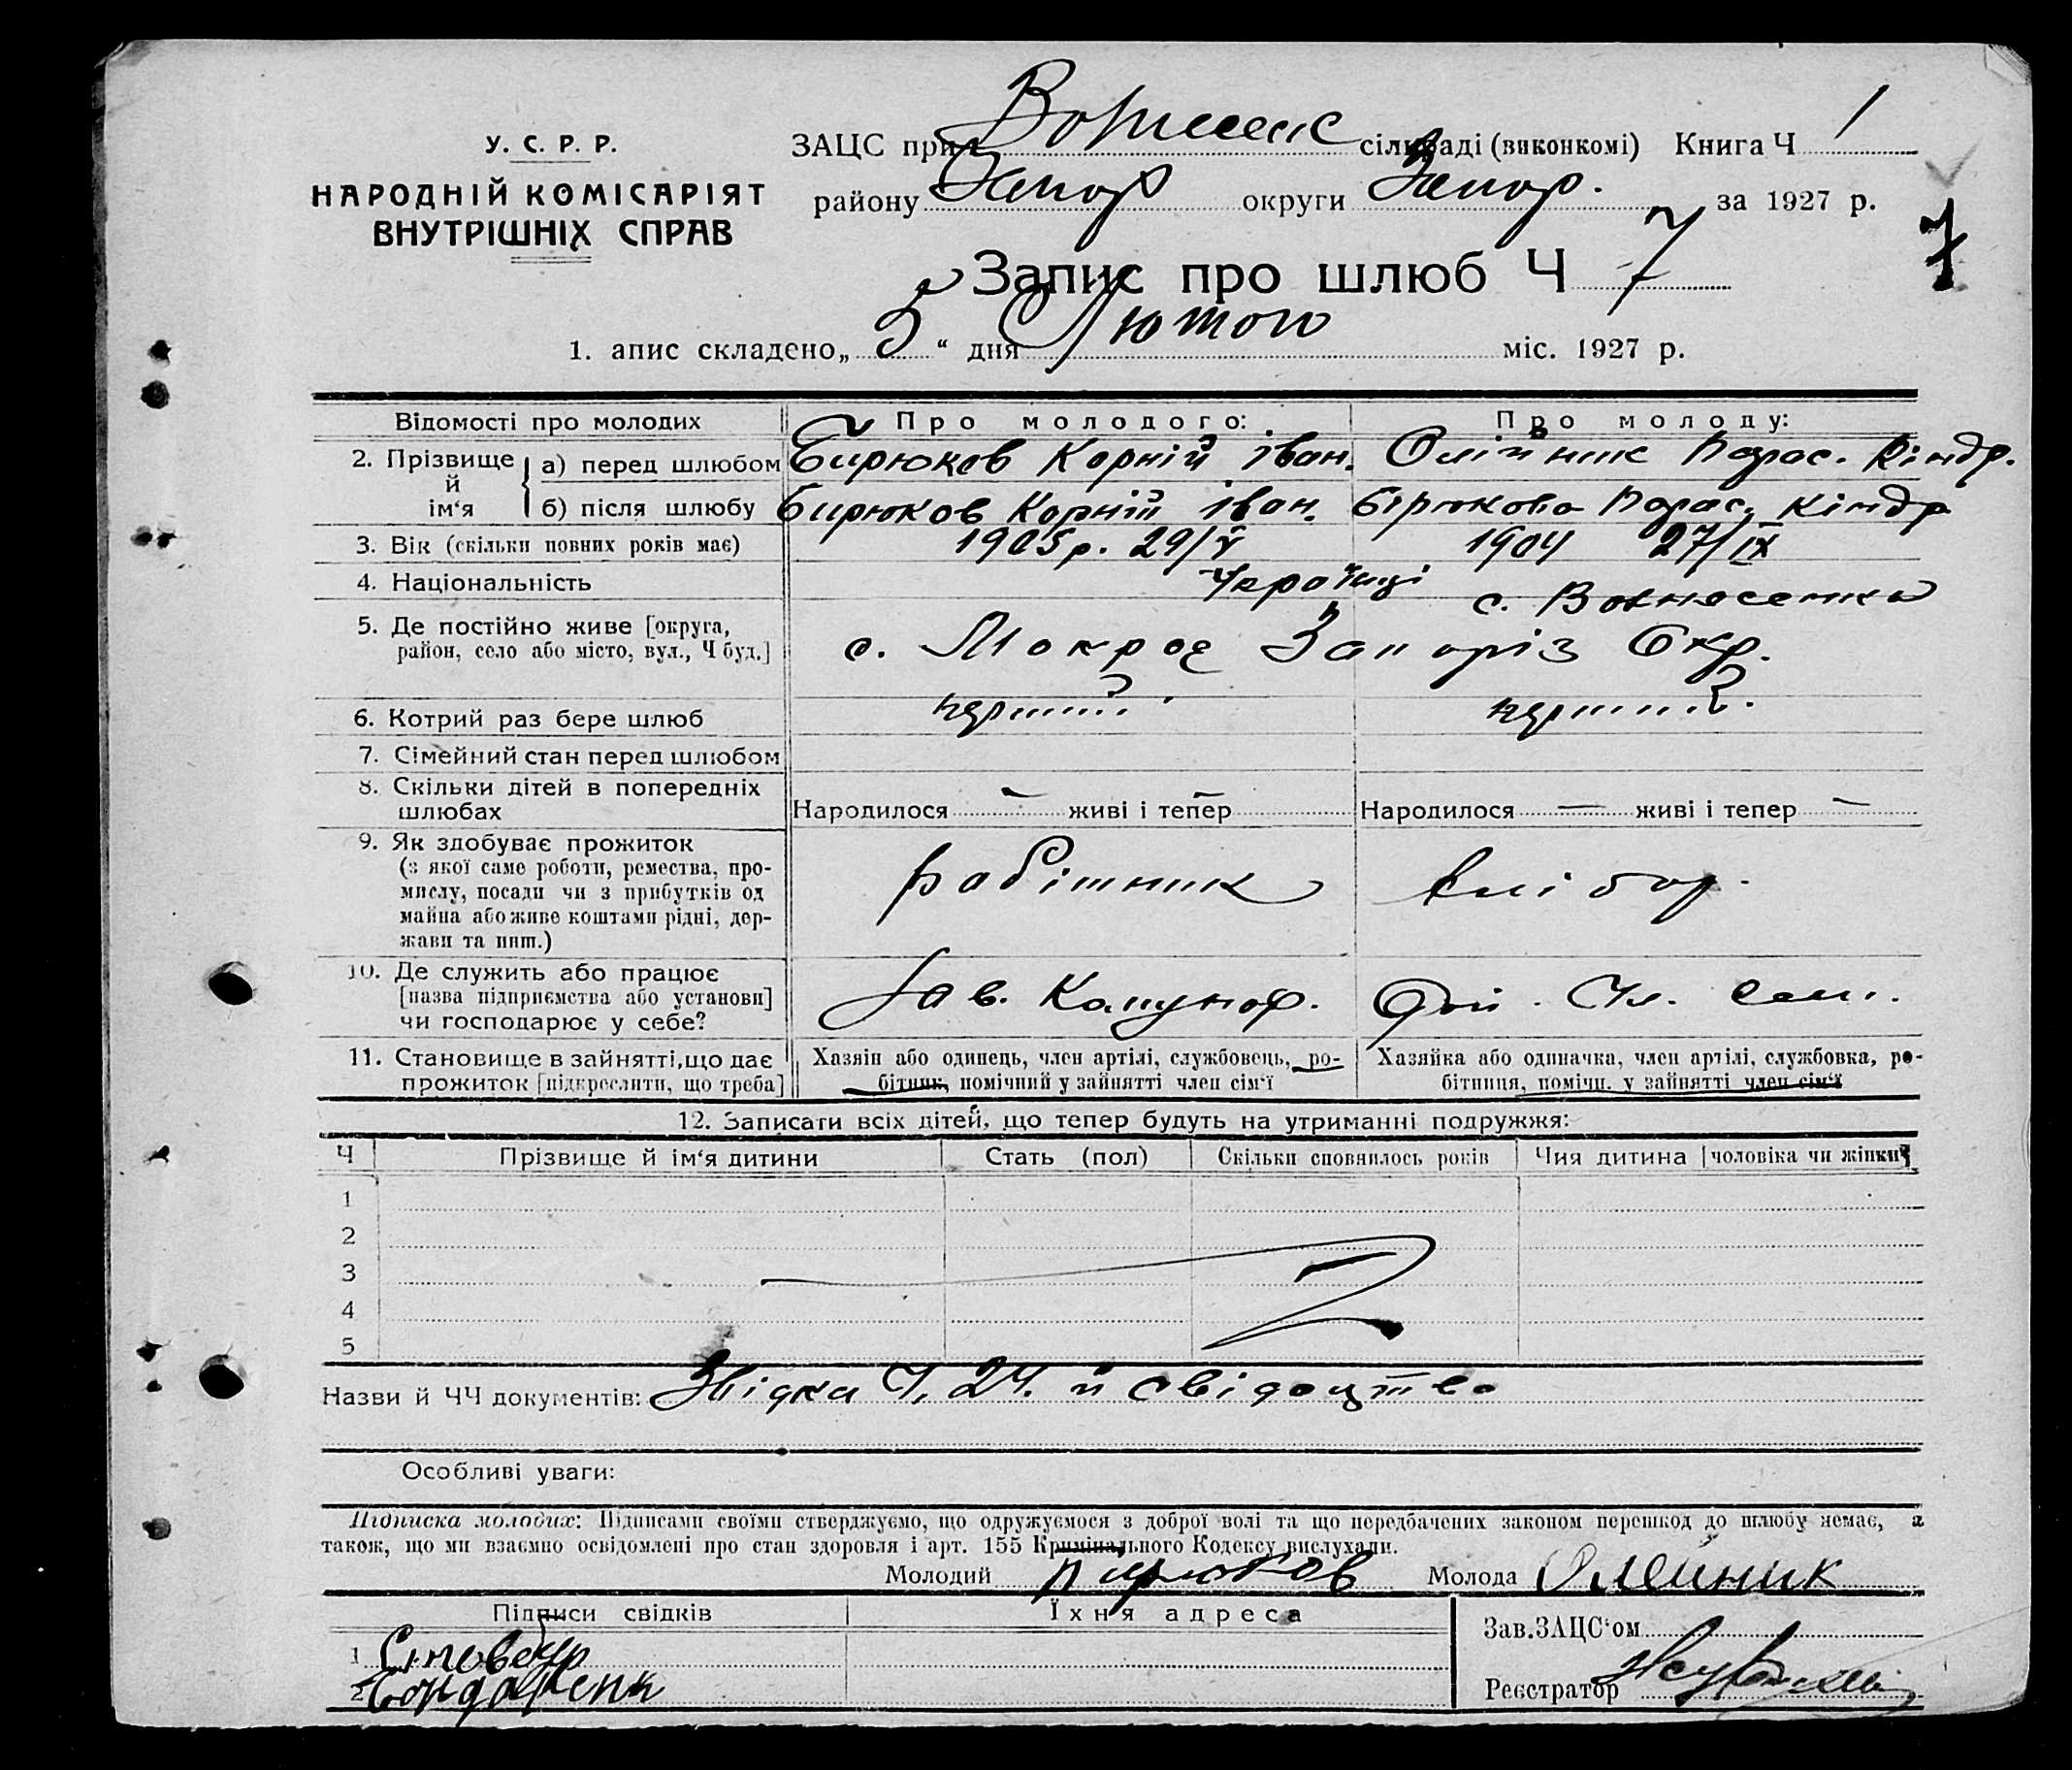 У. С. Р. Р.
НАРОДНІЙ КОМІСАРІЯТ
ВНУТРІШНІХ СПРАВ
ЗАЦС при сільраді (виконкомі) Книга Ч 1
району Запор округи Запор. за 1927 р.
7
Запис про шлюб Ч 7
1. апис складено „ 5 “ дня Лютого міс. 1927 р.
Відомості про молодих Про молодого: Про молоду:
2. Прізвище й ім‘я а) перед шлюбом Бирюков Корній Іван. Олійник Парас. Кіндр.
б) після шлюбу Бирюков Корній Іван. Бірюкова Парас. Кіндр
3. Вік (скільки повних років має) 1905 р. 29/V 1904 27/IX
4. Національність Українці
с. Вознесенка
5. Де постійно живе [округа, с. Мокрое Запоріз Окр.
район, село або місто, вул., Ч буд.]
6. Котрий раз бере шлюб перший перший.
7. Сімейний стан перед шлюбом
8. Скільки дітей в попередніх
шлюбах Народилося — живі і тепер — Народилося — живі і тепер —
9. Як здобуває прожиток
(з якої саме роботи, ремества, про-
мислу, посади чи з прибутків од робітник хлібор.
майна або живе коштами рідні, дер-
жави та инш.)
10. Де служить або працює
[назва підприємства або установи] Зав.
чи господарює у себе?
11. Становище в зайнятті, що дає Хазяїн або одинець, член артілі, службовець, ро- Хазяйка або одиначка, член артілі, службовка, ро-
прожиток [підкреслити, що треба] бітник, помічний у зайнятті член сім‘ї бітниця, помічн. у зайнятті член сім‘ї
12. Записати всіх дітей, що тепер будуть на утриманні подружжя:
Ч Прізвище й ім‘я дитини Стать (пол) Скільки сповнилось років Чия дитина [чоловіка чи жінки]
1
2
3
4
5
Назви й ЧЧ документів: Звідка Ч. 24. й свідоцтво
Особливі уваги:
Підписка молодих: Підписами своїми стверджуємо, що одружуємося з доброї волі та що передбачених законом перешкод до шлюбу немає, а
також, що ми взаємно освідомлені про стан здоровля і арт. 155 Кримінального Кодексу вислухали.
Молодий Бирюков Молода Олейник
Підписи свідків Їхня адреса
Зав. ЗАЦС‘ом
1
2 Бондаренк
Реєстратор